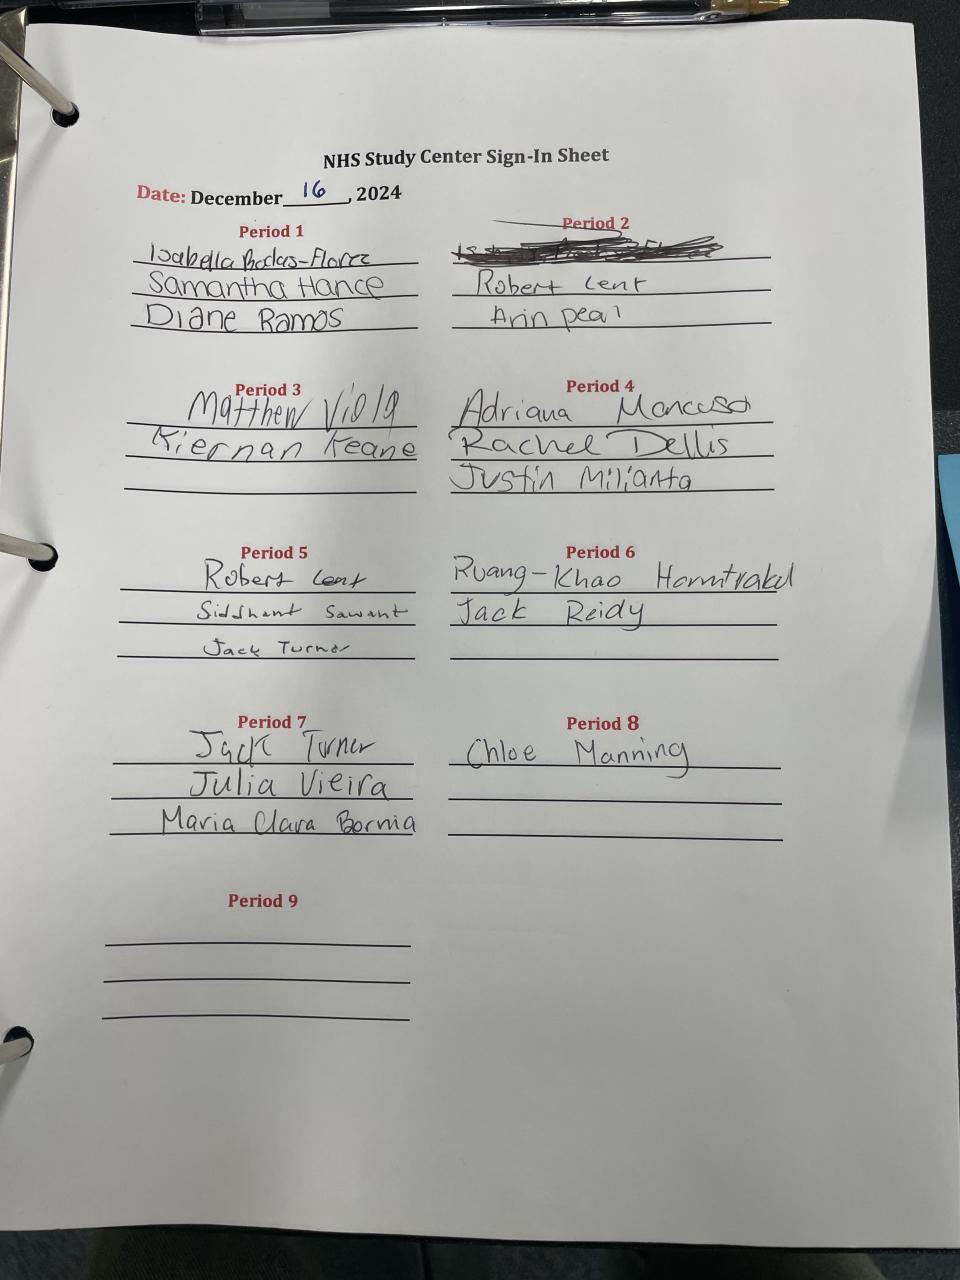 NHS Study Center Sign-In Sheet
Date: December 16, 2024
Period 1
Isabella Bodas-Florez
Samantha Hance
Diane Ramos
Period 2
Robert Lent
Arin pearl
Period 3
Matthew Viola
Kiernan Keane
Period 4
Adriana Mancuso
Rachel Dellis
Justin Milianta
Period 5
Robert Lent
Siddhant Sawant
Jack Turner
Period 6
Ruang-Khao
Jack Reidy
Period 7
Jack Turner
Julia Vieira
Maria Clara Bornia
Period 8
Chloe Manning
Period 9